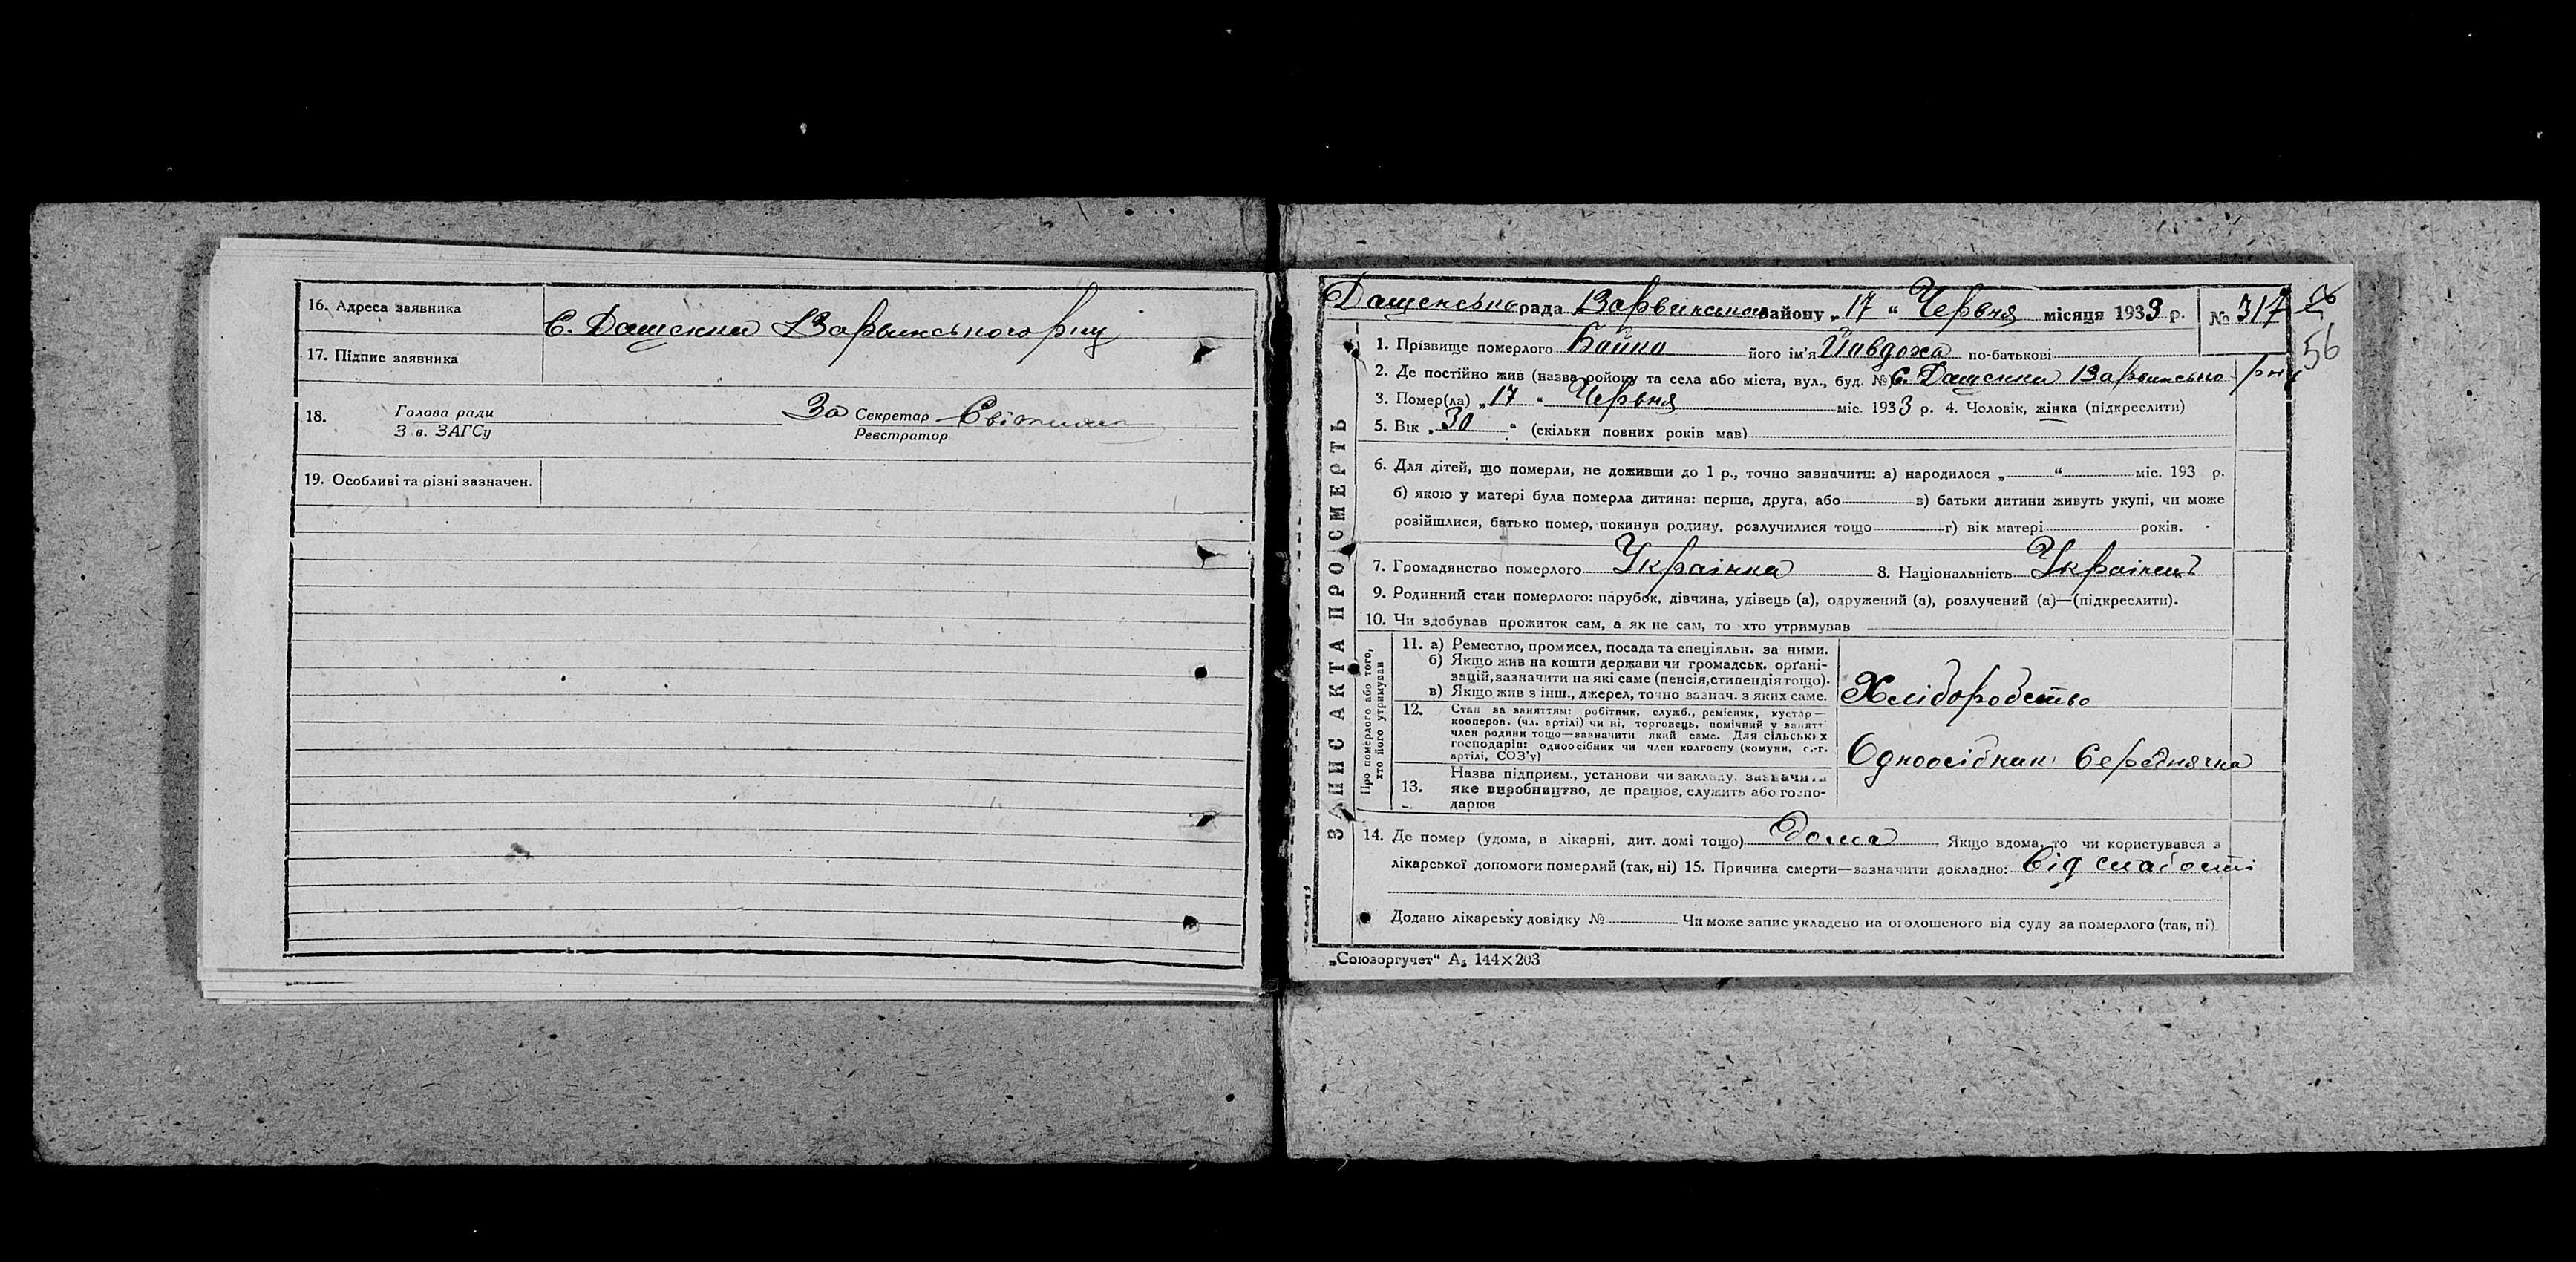 16. Адреса заявника
С. Дащенки Варвинського рну
17. Підпис заявника
18. Голова ради
З в. ЗАГСу
За Секретар
Реєстратор
19. Особливі та різні зазначен.
Дащенсько рада Варвинського району „17“ Червня місяця 1933 р. № 317
56
ЗАПИС АКТА ПРО СМЕРТЬ
1. Прізвище померлого Байна його ім'я Йавдоха по-батькові
2. Де постійно жив (назва району та села або міста, вул., буд. № С. Дащенки Варвинсько рну
3. Помер(ла) „17“ Червня міс. 1933 р. 4. Чоловік, жінка (підкреслити)
5. Вік „30“ (скільки повних років мав)
6. Для дітей, що померли, не доживши до 1 р., точно зазначити: а) народилося „ “ міс. 193 р.
б) якою у матері була померла дитина: перша, друга, або в) батьки дитини живуть укупі, чи може
розійшлися, батько помер, покинув родину, розлучилися тощо г) вік матері років.
7. Громадянство померлого Украінка 8. Національність Украінец
9. Родинний стан померлого: парубок, дівчина, удівець (а), одружений (а), розлучений (а)—(підкреслити).
10. Чи здобував прожиток сам, а як не сам, то хто утримував
Про померлого або того,
хто його утримував
11. а) Ремество, промисел, посада та спеціяльн. за ними.
б) Якщо жив на кошти держави чи громадськ. орґані-
зацій, зазначити на які саме (пенсія, стипендія тощо).
в) Якщо жив з інш., джерел, точно зазнач. з яких саме.
Хліборобство
12. Стан за заняттям: робітник, служб., ремісник, кустар—
кооперов. (чл. артілі) чи ні, торговець, помічний у занятт
член родини тощо—зазначити який саме. Для сільських
господарів: одноосібник чи член колгоспу (комуни, с.-г.
артілі, СОЗ'у)
Одноосібник Середнячка
13. Назва підприєм., установи чи закладу, зазначити
яке виробництво, де працює, служить або госпо-
дарює
14. Де помер (удома, в лікарні, дит. домі тощо) дома Якщо вдома, то чи користувався з
лікарської допомоги померлий (так, ні) 15. Причина смерти—зазначити докладно: Від слабости
Додано лікарську довідку № Чи може запис укладено на оголошеного від суду за померлого (так, ні)
„Союзоргучет“ А5 144×203